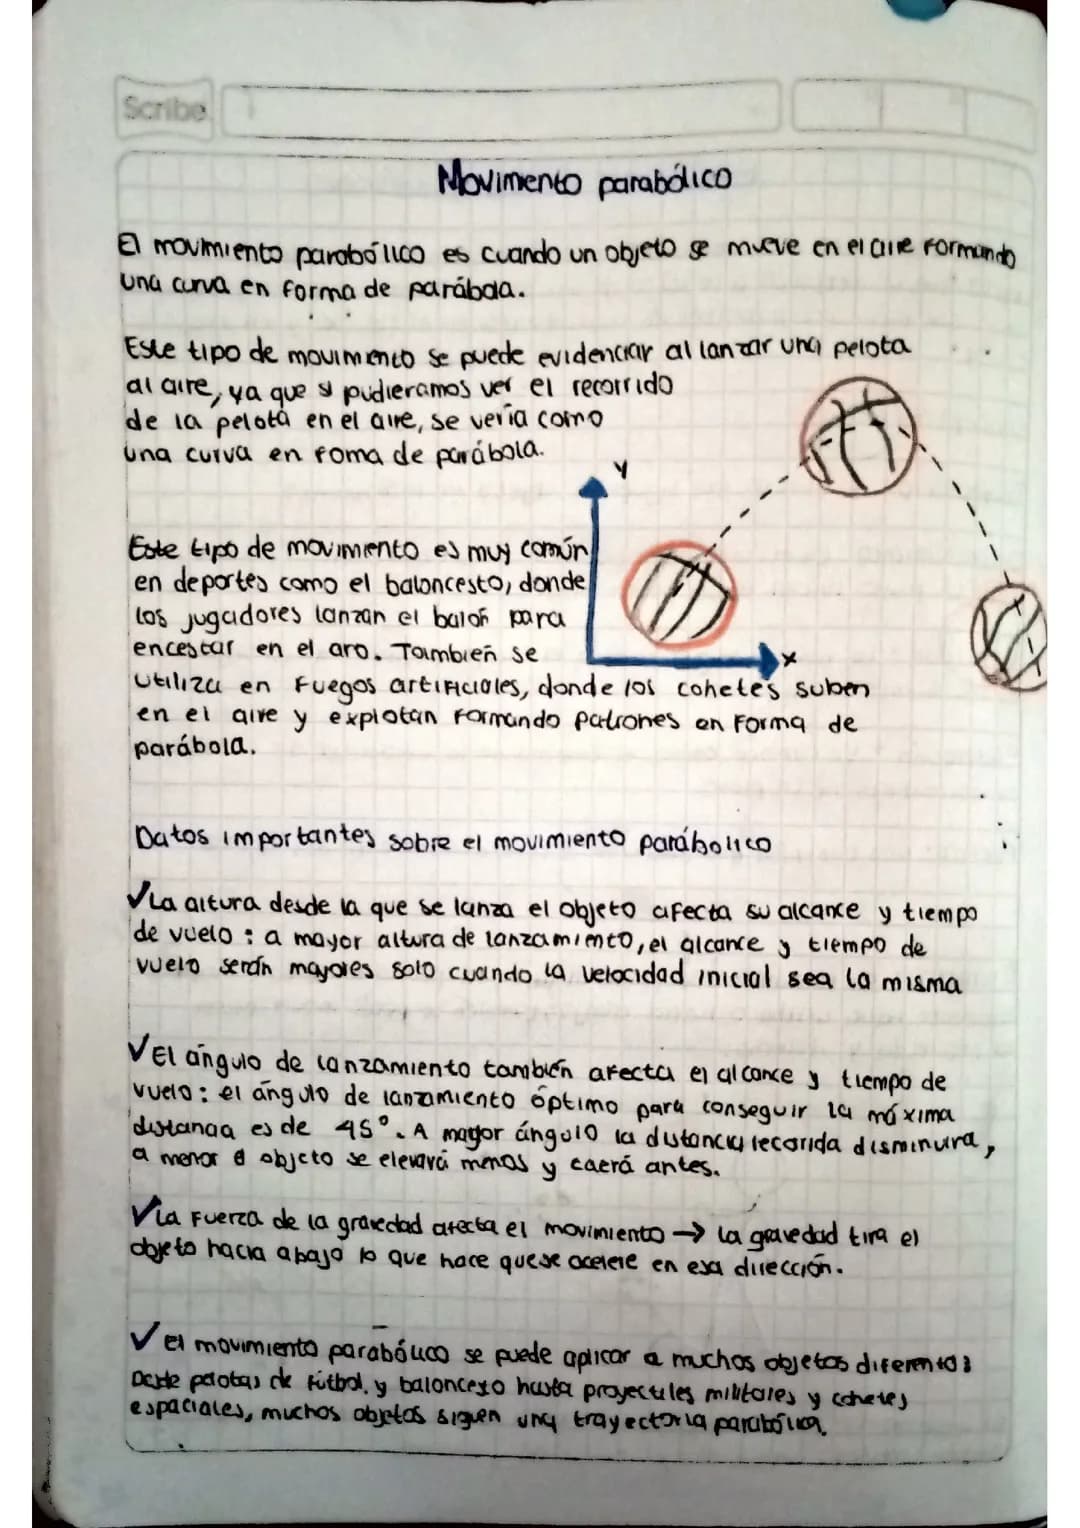 Scribe
Movimento parabólico
El movimiento parabólico es cuando un objeto se mueve en el aire formando
una curva en forma de parábola.
Este tipo de movimiento se puede evidenciar al lanzar una pelota
al aire, ya que si pudieramos ver el recorrido
de la pelota en el aire, se vería como
una curva en foma de parábola.
Y
Este tipo de movimiento es muy común
en deportes como el baloncesto, donde
los jugadores lanzan el balón para
encestar en el aro. También se
X
utiliza en fuegos artificiales, donde los cohetes suben
en el aire y explotan formando patrones en forma de
parábola.
Datos importantes sobre el movimiento parábolico
✓La altura desde la que se lanza el objeto afecta su alcance y tiempo
de vuelo : a mayor altura de lanzamiento, el alcance y tiempo de
vuelo serán mayores solo cuando la velocidad inicial sea la misma
✓El ángulo de lanzamiento también afecta el alcance y tiempo de
vuelo : el ángulo de lanzamiento óptimo para conseguir la máxima
distancia es de 45°. A mayor ángulo la distancia recorida disminuira,
a menor el objeto se elevará menos y caerá antes.
✓La fuerza de la gravedad afecta el movimiento → la gravedad tira el
objeto hacia abajo lo que hace que se acelere en esa dirección.
✓El movimiento parabólico se puede aplicar a muchos objetos diferentes:
Desde pelotas de fútbol, y baloncesto hasta proyectiles militares y cohetes
espaciales, muchos objetos siguen una trayectoria parabólica.